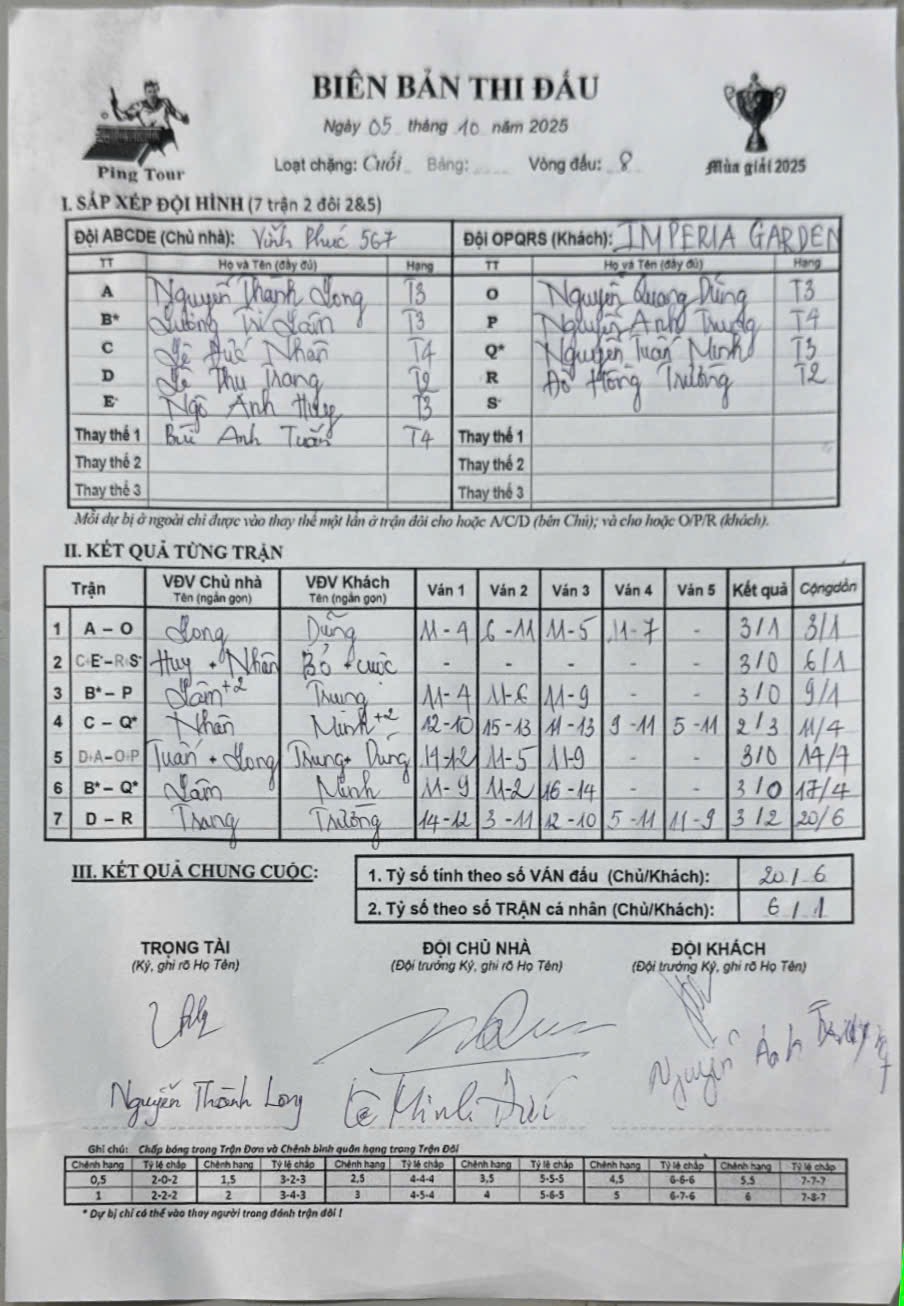 BIÊN BẢN THI ĐẤU
Ngày 05 tháng 10 năm 2025
Loạt chặng: Cuối Bảng: Vòng đấu: 8
Ping Tour
Mùa giải 2025
I. SẮP XẾP ĐỘI HÌNH (7 trận 2 đôi 2&5)
Đội ABCDE (Chủ nhà): Vĩnh Phúc 567 Đội OPQRS (Khách): IMPERIA GARDEN
TT Họ và Tên (đầy đủ) Hạng TT Họ và Tên (đầy đủ) Hạng
A Nguyễn Thành Long T3 O Nguyễn Quang Dũng T3
B* Lương Trí Lâm T3 P Nguyễn Anh Trung T4
C Lê Đức Nhân T4 Q* Nguyễn Tuấn Minh T3
D Lê Thu Trang T2 R Đỗ Hồng Trường T2
E- Ngô Anh Huy T3 S-
Thay thế 1 Bùi Anh Tuấn T4 Thay thế 1
Thay thế 2 Thay thế 2
Thay thế 3 Thay thế 3
Mỗi dự bị ở ngoài chỉ được vào thay thế một lần ở trận đôi cho hoặc A/C/D (bên Chủ); và cho hoặc O/P/R (khách).
II. KẾT QUẢ TỪNG TRẬN
Trận VĐV Chủ nhà Tên (ngắn gọn) VĐV Khách Tên (ngắn gọn) Ván 1 Ván 2 Ván 3 Ván 4 Ván 5 Kết quả Cộng dồn
1 A – O Long Dũng 11-4 6-11 11-5 11-7 - 3/1 3/1
2 C+E-–R+S- Huy + Nhân Bỏ cuộc - - - - - 3/0 6/1
3 B* – P Lâm+2 Trung 11-4 11-6 11-9 - - 3/0 9/1
4 C – Q* Nhân Minh+2 12-10 15-13 11-13 9-11 5-11 2/3 11/4
5 D+A–O+P Tuấn + Long Trung + Dũng 14-12 11-5 11-9 - - 3/0 14/4
6 B* – Q* Lâm Minh 11-9 11-2 16-14 - - 3/0 17/4
7 D – R Trang Trường 14-12 3-11 12-10 5-11 11-9 3/2 20/6
III. KẾT QUẢ CHUNG CUỘC:
1. Tỷ số tính theo số VÁN đấu (Chủ/Khách): 20/6
2. Tỷ số theo số TRẬN cá nhân (Chủ/Khách): 6/1
TRỌNG TÀI ĐỘI CHỦ NHÀ ĐỘI KHÁCH
(Ký, ghi rõ Họ Tên) (Đội trưởng Ký, ghi rõ Họ Tên) (Đội trưởng Ký, ghi rõ Họ Tên)
Nguyễn Thành Long Lê Minh Đức Nguyễn Anh Trung
Ghi chú: Chấp bóng trong Trận Đơn và Chênh bình quân hạng trong Trận Đôi
Chênh hạng Tỷ lệ chấp Chênh hạng Tỷ lệ chấp Chênh hạng Tỷ lệ chấp Chênh hạng Tỷ lệ chấp Chênh hạng Tỷ lệ chấp Chênh hạng Tỷ lệ chấp
0,5 2-0-2 1,5 3-2-3 2,5 4-4-4 3,5 5-5-5 4,5 6-6-6 5,5 7-7-7
1 2-2-2 2 3-4-3 3 4-5-4 4 5-6-5 5 6-7-6 6 7-8-7
* Dự bị chỉ có thể vào thay người trong đánh trận đôi !